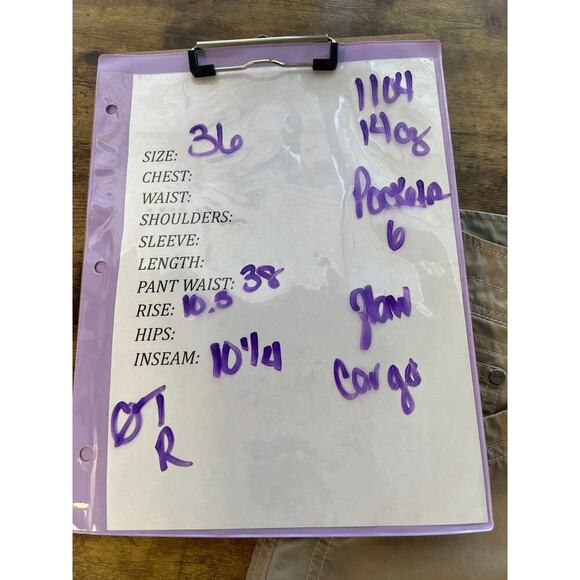 1104
14oz
SIZE: 36
CHEST:
WAIST:
Pockets
SHOULDERS:
6
SLEEVE:
LENGTH:
PANT WAIST: 38
RISE: 10.3
flaw
HIPS:
INSEAM: 10 1/4
Cargo
R